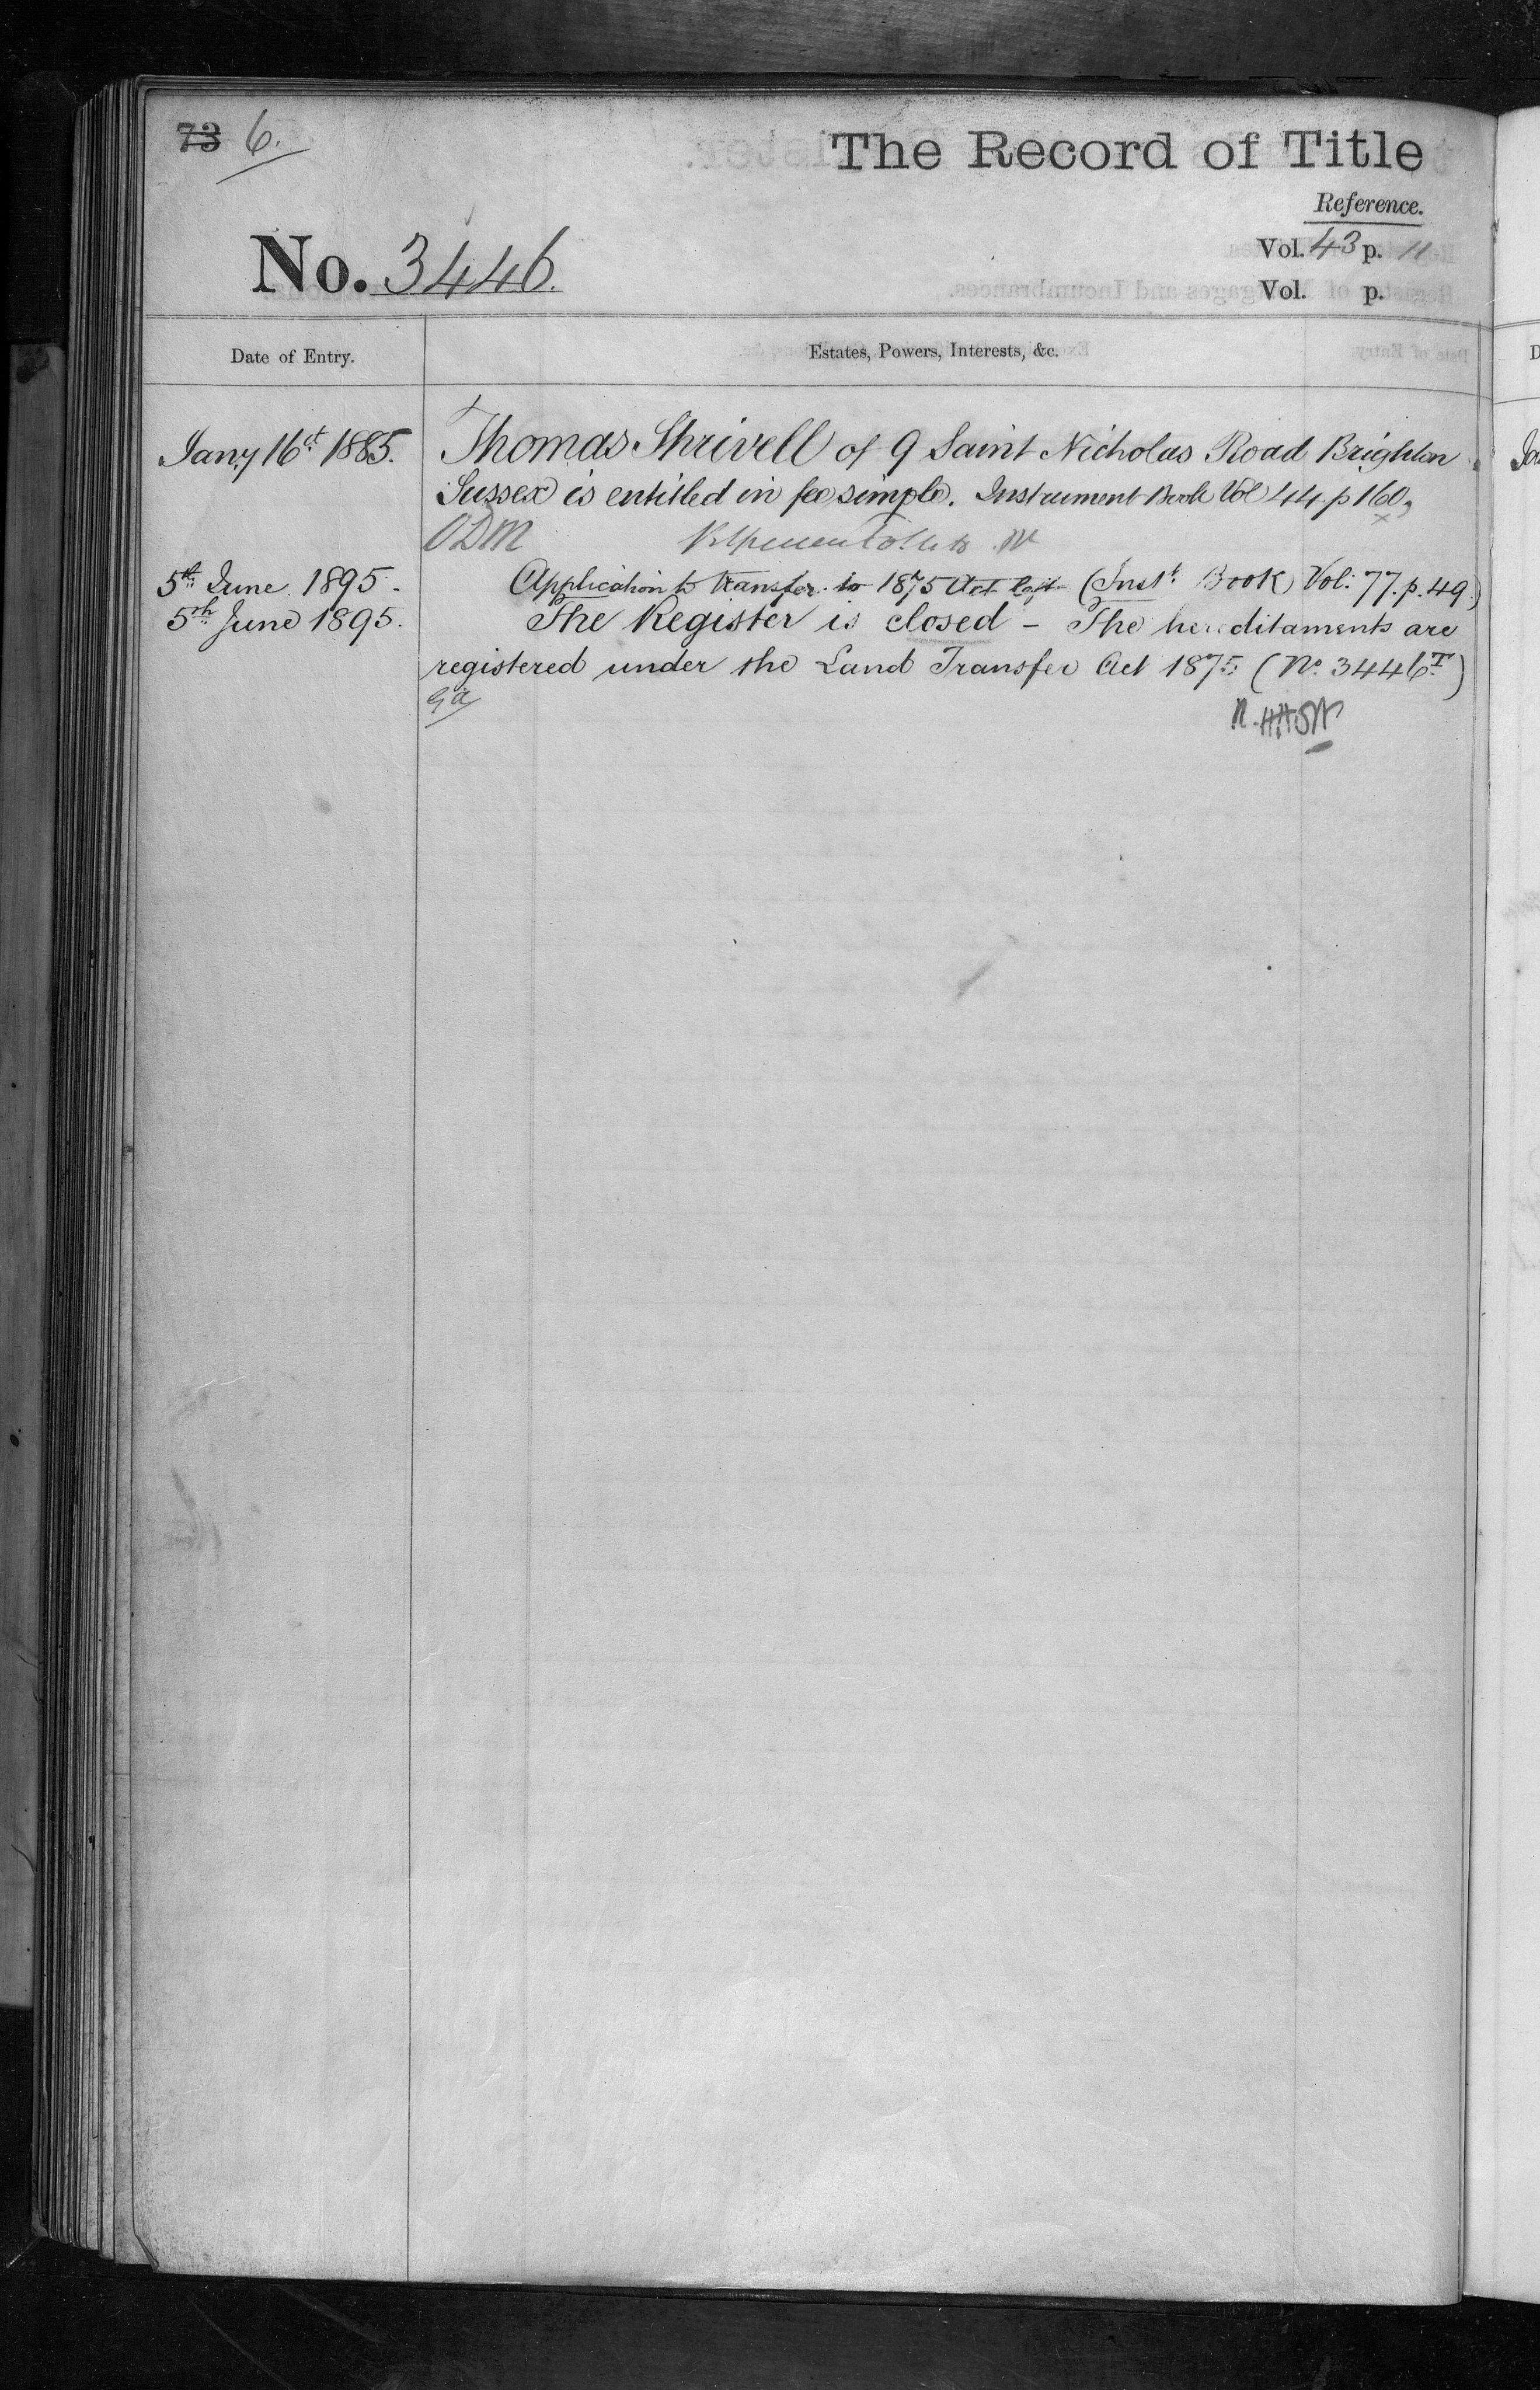 73 6.
The Record of Title
Reference.
No. 3446.
Vol. 43 p. 11
Vol. p.
Date of Entry.
Estates, Powers, Interests, &c.
Jany 16th 1885.
Thomas Shrivell of 9 Saint Nicholas Road Brighton
Sussex is entitled in fee simple. Instrument Book Vol 44 p 160
ODM
5th June 1895.
Application to transfer to 1875 Act left (Inst. Book Vol: 77. p. 49.)
5th June 1895.
The Register is closed - The hereditaments are
registered under the Land Transfer Act 1875 (No. 3446T)